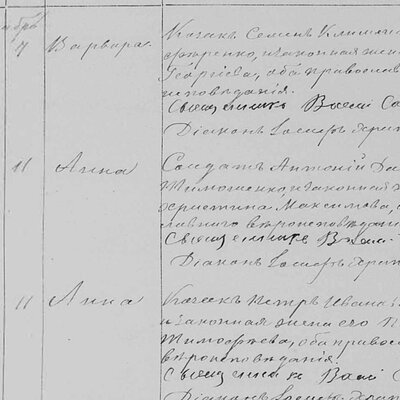 7 Варвара Козакъ Семенъ Климен
ѳеренко, и законная жен
Георгіева, оба православ
исповѣданія.
Священникъ Васи
Діаконъ Іосифъ
11 Анна Солдатъ Антоній Да
Тимошенко и законная
Христина Максимова,
славнаго вѣроисповѣдан
Священникъ Васи
Діаконъ Іосифъ
11 Анна Козакъ Петръ Ивано
и законная жена его
Тимофѣева, оба правос
вѣроисповѣданія.
Священникъ Васи
Діаконъ Іосифъ